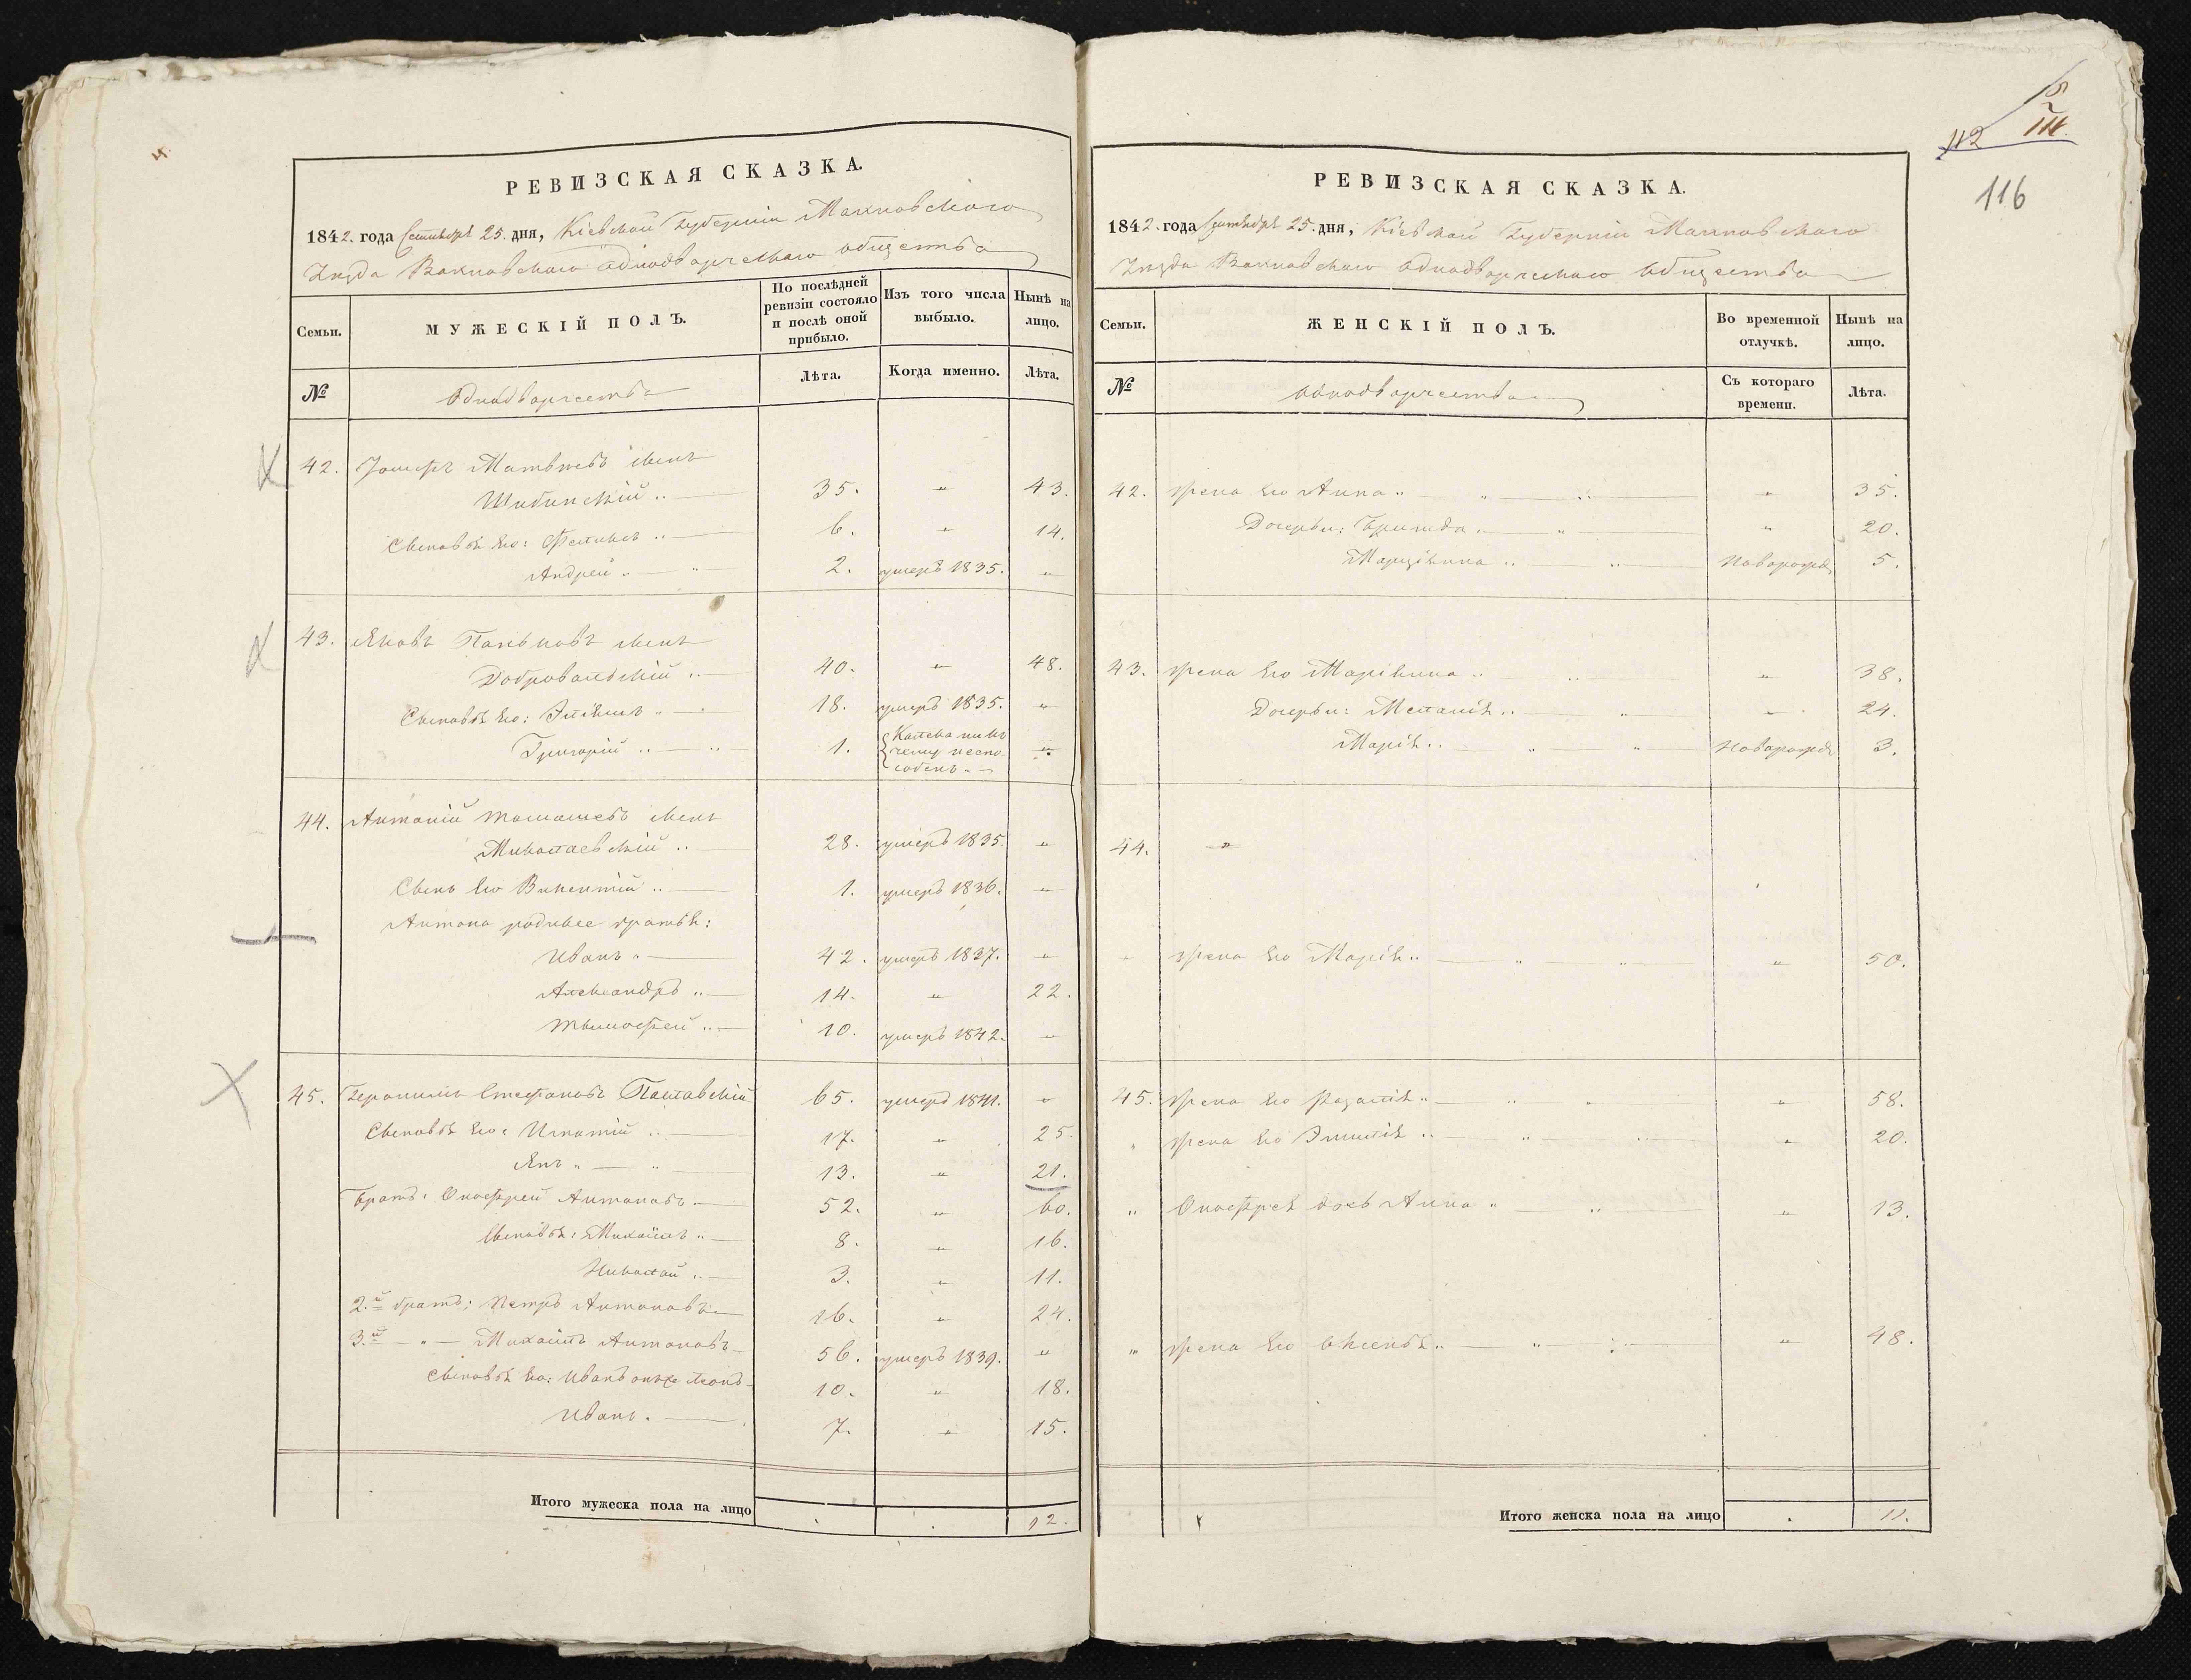 РЕВИЗСКАЯ СКАЗКА.
1842. года Сентября 25. дня, Кіевской Губерніи Махновского
Уѣзда Вахновского Однодворческого общества
Семьи.
МУЖЕСКІЙ ПОЛЪ.
По послѣдней ревизіи состояло и послѣ оной прибыло.
Изъ того числа выбыло.
Нынѣ на лицо.
№
Однодворчества
Лѣта.
Когда именно.
Лѣта.
42. Іосифъ Матвѣевъ сынъ
Шибинскій 35. " 43.
Сыновья Его: Феликсъ 6. " 14.
Андрей 2. умеръ 1835. "
43. Яковъ сынъ
Добровольскій 40. " 48.
Сыновья Его: 18. умеръ 1835. "
Григорій 1. Калѣка ни къ чему неспособенъ "
44. Антоній Томашевъ сынъ
Миколаевскій 28. умеръ 1835. "
Сынъ Его Викентій 1. умеръ 1836. "
Антона родные братья:
Иванъ 42. умеръ 1837. "
Александръ 14. " 22.
Тимофей 10. умеръ 1842. "
45. Геронимъ Стефановъ 65. умеръ 1841. "
Сыновья Его: Игнатій 17. " 25.
Янъ 13. " 21.
Братъ: Онофрей Антоновъ 52. " 60.
Сыновья: Михаилъ 8. " 16.
Николай 3. " 11.
2.й братъ: Петръ Антоновъ 16. " 24.
3.й " Михаилъ Антоновъ 56. умеръ 1839. "
Сыновья Его: Иванъ онъже Леонъ 10. " 18.
Иванъ 7. " 15.
Итого мужеска пола на лицо 12.
112
116
РЕВИЗСКАЯ СКАЗКА.
1842. года Сентября 25. дня, Кіевской Губерніи Махновского
Уѣзда Вахновского Однодворческого Общества
Семьи.
ЖЕНСКІЙ ПОЛЪ.
Во временной отлучкѣ.
Нынѣ на лицо.
№
Однодворчества
Съ котораго времени.
Лѣта.
42. жена Его Анна " 35.
Дочери: Бригида " 20.
Марціянна Новорожд 5.
43. жена Его Маріянна " 38.
Дочери: Меланія " 24.
Марія Новорожд 3.
44. "
" жена Его Марія " 50.
45. жена Его Розалія " 58.
" жена Его Эмилія " 20.
" Онофрея дочь Анна " 13.
" жена Его " 48.
Итого женска пола на лицо 11.